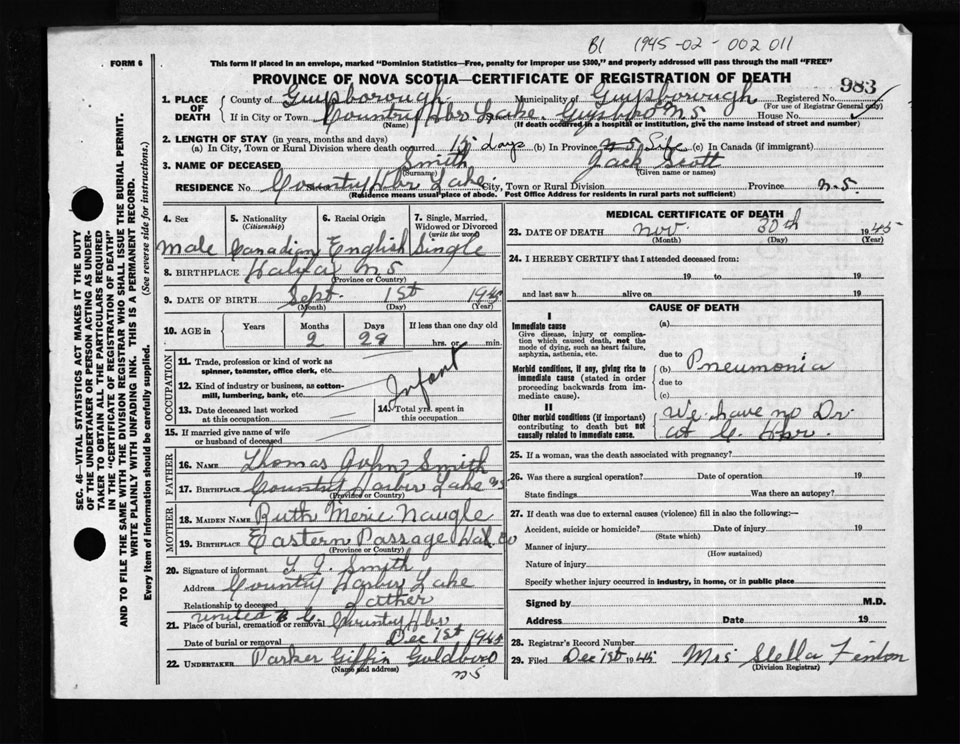 B1 1945-02-002011
FORM 6
This form if placed in an envelope, marked "Dominion Statistics—Free, penalty for improper use $300," and properly addressed will pass through the mail "FREE"
PROVINCE OF NOVA SCOTIA—CERTIFICATE OF REGISTRATION OF DEATH
983
SEC. 46—VITAL STATISTICS ACT MAKES IT THE DUTY
OF THE UNDERTAKER OR PERSON ACTING AS UNDER-
TAKER TO OBTAIN ALL THE PARTICULARS REQUIRED
IN THE "CERTIFICATE OF REGISTRATION OF DEATH"
AND TO FILE THE SAME WITH THE DIVISION REGISTRAR WHO SHALL ISSUE THE BURIAL PERMIT.
WRITE PLAINLY WITH UNFADING INK. THIS IS A PERMANENT RECORD.
Every item of information should be carefully supplied. (See reverse side for instructions.)
1. PLACE OF DEATH
County of Guysborough Municipality of Guysborough Registered No.
(For use of Registrar General only)
If in City or Town Country Hbr Lake. Guysboro N.S. House No.
(Name) (If death occurred in a hospital or institution, give the name instead of street and number)
2. LENGTH OF STAY (in years, months and days)
(a) In City, Town or Rural Division where death occurred 15 Days (b) In Province Life (c) In Canada (if immigrant)
3. NAME OF DECEASED Smith Jack Scott
(Surname) (Given name or names)
RESIDENCE No. Country Hbr Lake. City, Town or Rural Division Province N.S.
(Residence means usual place of abode. Post Office Address for residents in rural parts not sufficient)
4. Sex 5. Nationality (Citizenship) 6. Racial Origin 7. Single, Married, Widowed or Divorced (write the word)
Male Canadian English Single
8. BIRTHPLACE Halifax N.S
(Province or Country)
9. DATE OF BIRTH Sept. 1st 1945
(Month) (Day) (Year)
10. AGE in Years Months Days If less than one day old
2 29 hrs. or min.
OCCUPATION
11. Trade, profession or kind of work as
spinner, teamster, office clerk, etc.
12. Kind of industry or business, as cotton-
mill, lumbering, bank, etc.
Infant
13. Date deceased last worked
at this occupation
14. Total yrs. spent in
this occupation
15. If married give name of wife
or husband of deceased
FATHER
16. NAME Thomas John Smith
17. BIRTHPLACE Country Harbor Lake NS
(Province or Country)
MOTHER
18. MAIDEN NAME Ruth Merie Naugle
19. BIRTHPLACE Eastern Passage Hal. Co
(Province or Country)
20. Signature of informant T. J. Smith
Address Country Harbor Lake
Relationship to deceased father
21. Place of burial, cremation or removal United B C. Country Hbr
Date of burial or removal Dec 1st 1945
22. UNDERTAKER Parker Giffin Goldboro
(Name and address)
NS
MEDICAL CERTIFICATE OF DEATH
23. DATE OF DEATH Nov. 30th 1945
(Month) (Day) (Year)
24. I HEREBY CERTIFY that I attended deceased from:
19 to 19
and last saw h alive on 19
CAUSE OF DEATH
I
Immediate cause (a)
Give disease, injury or complica-
tion which caused death, not the
mode of dying, such as heart failure,
asphyxia, asthenia, etc.
due to
Morbid conditions, if any, giving rise to
immediate cause (stated in order
proceeding backwards from im-
mediate cause).
(b) Pneumonia
due to
(c)
II
Other morbid conditions (if important)
contributing to death but not
causally related to immediate cause.
We have no Dr.
at C. Hbr.
25. If a woman, was the death associated with pregnancy?
26. Was there a surgical operation? Date of operation 19
State findings Was there an autopsy?
27. If death was due to external causes (violence) fill in also the following:—
Accident, suicide or homicide? Date of injury 19
(State which)
Manner of injury
(How sustained)
Nature of injury
Specify whether injury occurred in industry, in home, or in public place
Signed by M.D.
Address Date 19
28. Registrar's Record Number
29. Filed Dec 1st 1945 Mrs Stella Fenton
(Division Registrar)